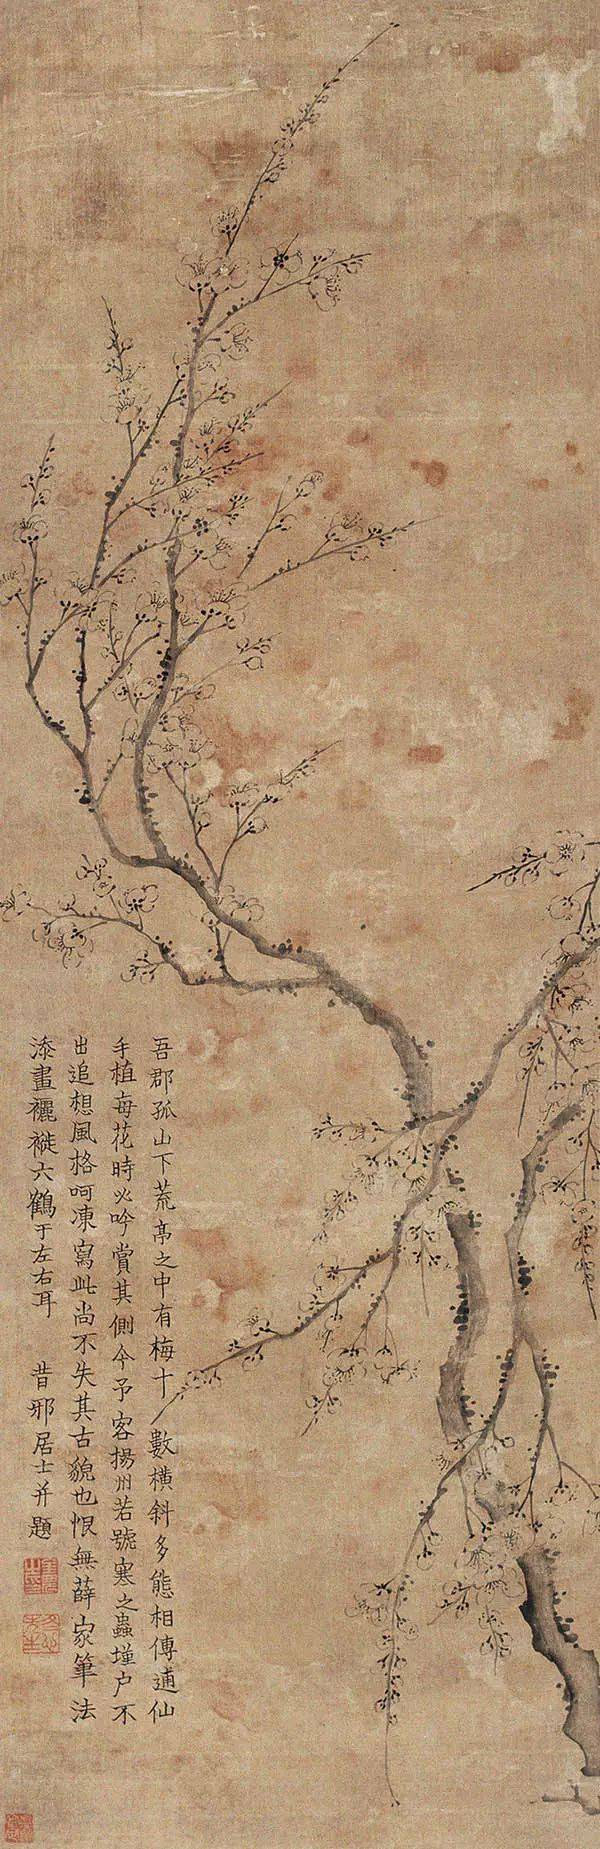 吾郡孤山下荒亭之中有梅十數橫斜多態相傳逋仙
手植每花時必吟賞其側今予客揚州若號寒之蟲墐户不
出追想風格呵凍寫此尚不失其古貌也恨無薛家筆法
添畫襹褷六鶴于左右耳
昔邪居士并題